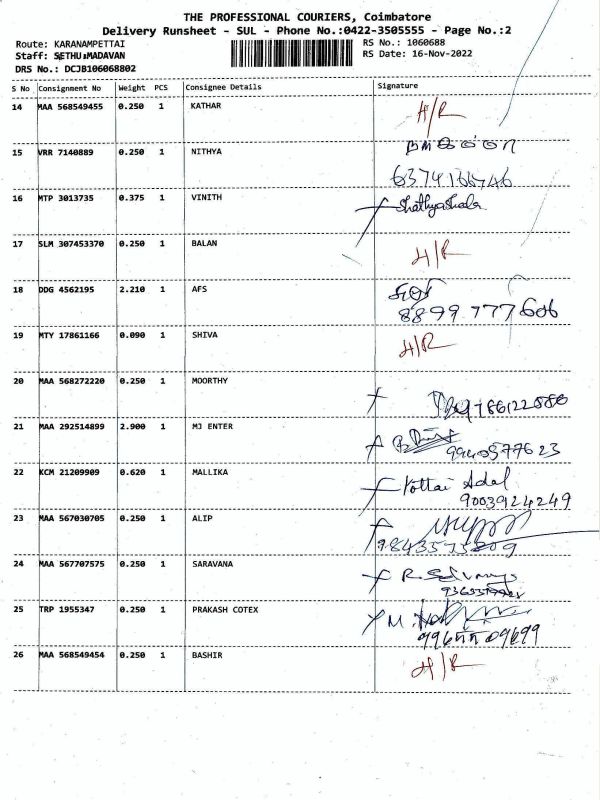 THE PROFESSIONAL COURIERS, Coimbatore
Delivery Runsheet - SUL - Phone No.:0422-3505555 - Page No.:2
Route: KARANAMPETTAI RS No.: 1060688
Staff: SETHU MADAVAN RS Date: 16-Nov-2022
DRS No.: DCJB106068802
S No Consignment No Weight PCS Consignee Details Signature
14 MAA 568549455 0.250 1 KATHAR H/R
15 VRR 7140889 0.250 1 NITHYA
16 MTP 3013735 0.375 1 VINITH
17 SLM 307453370 0.250 1 BALAN H/R
18 DDG 4562195 2.210 1 AFS
8899 777606
19 MTY 17861166 0.090 1 SHIVA H/R
20 MAA 568272220 0.250 1 MOORTHY
21 MAA 292514899 2.900 1 MJ ENTER
9940577623
22 KCM 21209909 0.620 1 MALLIKA
9003924249
23 MAA 567030705 0.250 1 ALIP
24 MAA 567707575 0.250 1 SARAVANA
25 TRP 1955347 0.250 1 PRAKASH COTEX
26 MAA 568549454 0.250 1 BASHIR H/R